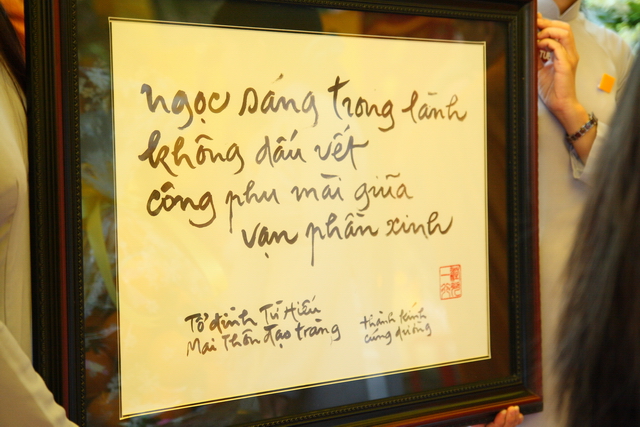 ngọc sáng trong lành
không dấu vết
công phu mài giũa
vạn phần xinh
Tổ đình Từ Hiếu
Mai Thôn đạo tràng
thành kính
cúng dường